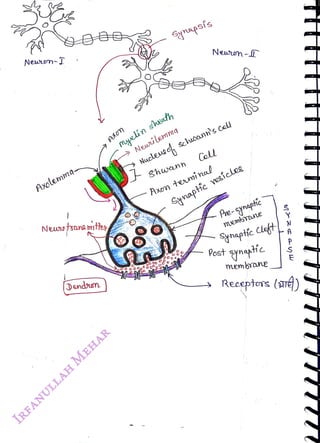 Synapsis
Neuron-I
Neuron-II
Axon
Myelin sheath
Neurilemma
Nucleus of schwann's cell
Shwann Cell
Axolemma
Axon terminal
Synaptic vesicles
Neurotransmitters
Pre-synaptic
membrane
Synaptic Cleft
Post synaptic
membrane
SYNAPSE
Dendron
Receptors
IRFANULLAH MEHAR